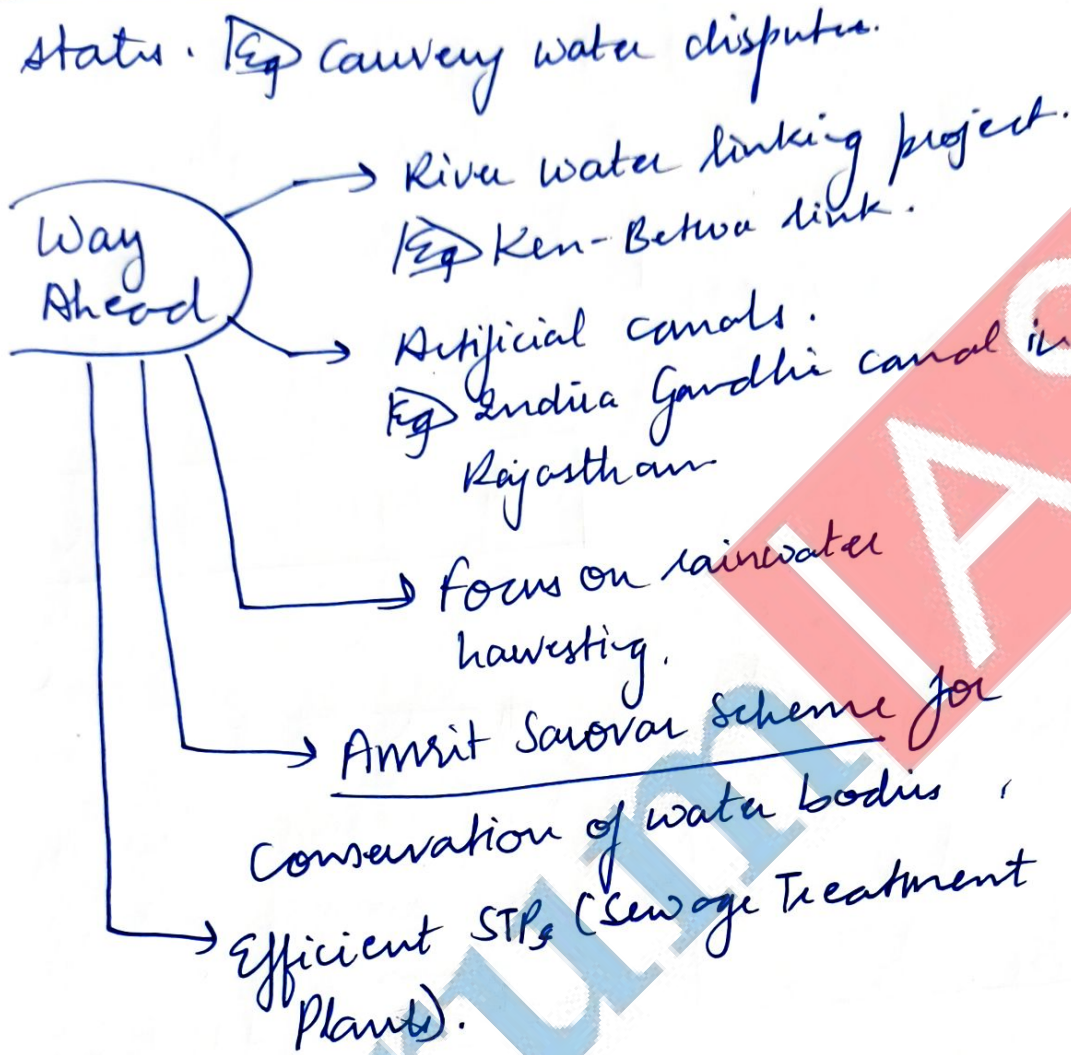 states. Eg Cauvery water disputes.
Way
Ahead
River water linking project.
Eg Ken-Betwa link.
Artificial canals.
Eg Indira Gandhi canal in
Rajasthan
Focus on rainwater
harvesting.
Amrit Sarovar Scheme for
Conservation of water bodies.
Efficient STPs (Sewage Treatment
Plants).
um IAS